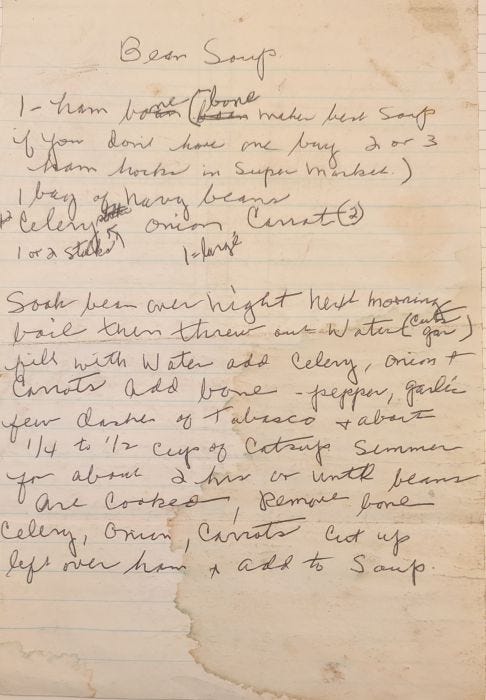 Bean Soup
1 - ham bone (bone makes best Soup
if you don't have one buy 2 or 3
ham hocks in Super Market.)
1 bag of navy beans
Celery onion Carrot (2)
1 or 2 Stalks 1 = large
Soak bean over night next morning
boil then threw out Water (cuts gas)
fill with Water add Celery, onion +
Carrots add bone - pepper, garlic
few dashes of Tabasco + about
1/4 to 1/2 cup of Catsup Semmer
for about 2 hrs or until beans
are cooked, Remove bone
Celery, Onion, Carrots Cut up
left over ham + add to Soup.